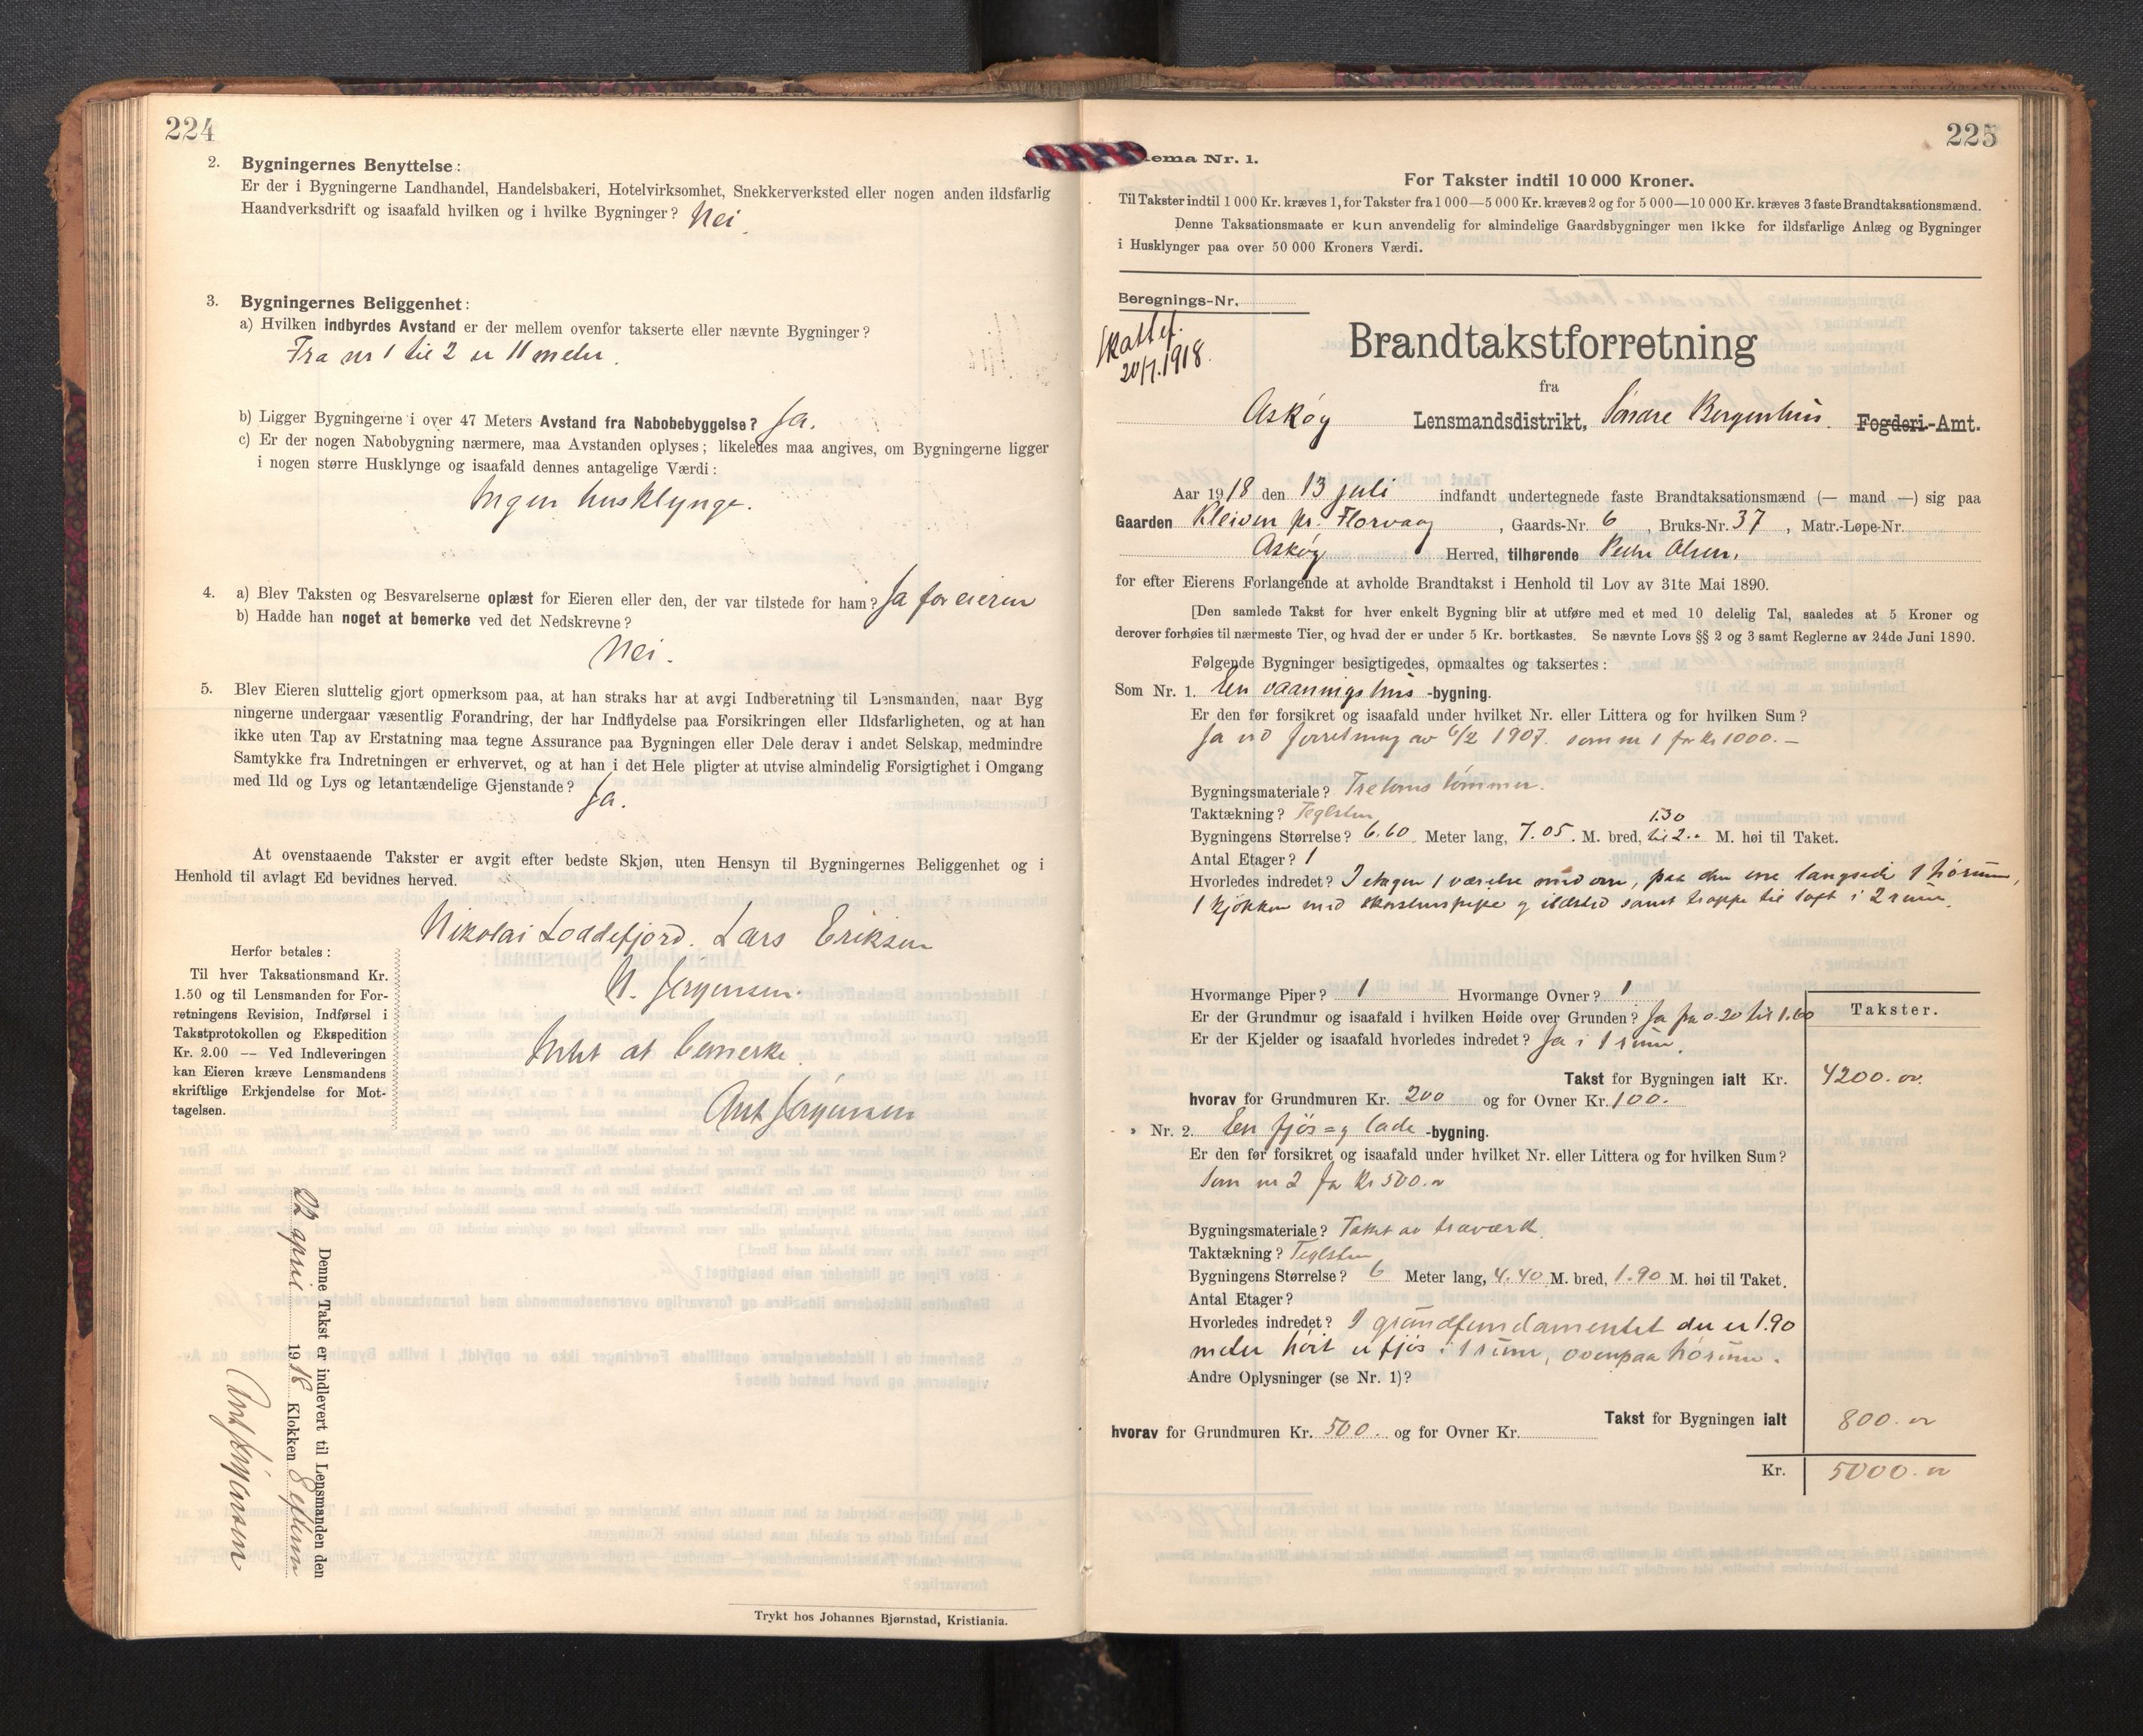 224
2. Bygningernes Benyttelse:
Er der i Bygningerne Landhandel, Handelsbakeri, Hotelvirksomhet, Snekkerverksted eller nogen anden ildsfarlig
Haandverksdrift og isaafald hvilken og i hvilke Bygninger? Nei.
3. Bygningernes Beliggenhet:
a) Hvilken indbyrdes Avstand er der mellem ovenfor takserte eller nævnte Bygninger?
Fra nr 1 til 2 er 11 meter.
b) Ligger Bygningerne i over 47 Meters Avstand fra Nabobebyggelse? Ja.
c) Er der nogen Nabobygning nærmere, maa Avstanden oplyses; likeledes maa angives, om Bygningerne ligger
i nogen større Husklynge og isaafald dennes antagelige Værdi:
Ingen husklynge.
4. a) Blev Taksten og Besvarelserne oplæst for Eieren eller den, der var tilstede for ham? Ja for eieren
b) Hadde han noget at bemerke ved det Nedskrevne?
Nei.
5. Blev Eieren sluttelig gjort opmerksom paa, at han straks har at avgi Indberetning til Lensmanden, naar Byg
ningerne undergaar væsentlig Forandring, der har Indflydelse paa Forsikringen eller Ildsfarligheten, og at han
ikke uten Tap av Erstatning maa tegne Assurance paa Bygningen eller Dele derav i andet Selskap, medmindre
Samtykke fra Indretningen er erhvervet, og at han i det Hele pligter at utvise almindelig Forsigtighet i Omgang
med Ild og Lys og letantændelige Gjenstande? Ja.
At ovenstaaende Takster er avgit efter bedste Skjøn, uten Hensyn til Bygningernes Beliggenhet og i
Henhold til avlagt Ed bevidnes herved.
Nikolai Loddefjord. Lars Eriksen
N. Jørgensen.
Intet at bemerke
Ant Jørgensen
Herfor betales:
Til hver Taksationsmand Kr.
1.50 og til Lensmanden for For-
retningens Revision, Indførsel i
Takstprotokollen og Ekspedition
Kr. 2.00 — Ved Indleveringen
kan Eieren kræve Lensmandens
skriftlige Erkjendelse for Mot-
tagelsen.
Denne Takst er indlevert til Lensmanden den
22 april 1918 Klokken 8 efterm
Ant Jørgensen
Trykt hos Johannes Bjørnstad, Kristiania.
225
ema Nr. 1.
For Takster indtil 10 000 Kroner.
Til Takster indtil 1 000 Kr. kræves 1, for Takster fra 1 000—5 000 Kr. kræves 2 og for 5 000—10 000 Kr. kræves 3 faste Brandtaksationsmænd.
Denne Taksationsmaate er kun anvendelig for almindelige Gaardsbygninger men ikke for ildsfarlige Anlæg og Bygninger
i Husklynger paa over 50 000 Kroners Værdi.
Beregnings-Nr.
20/7.1918.
Brandtakstforretning
fra
Askøy Lensmandsdistrikt, Søndre Bergenhus. Fogderi-Amt.
Aar 1918 den 13 juli indfandt undertegnede faste Brandtaksationsmænd (— mand —) sig paa
Gaarden Kleiven pr. Florvaag, Gaards-Nr. 6, Bruks-Nr. 37, Matr.-Løpe-Nr.
Askøy Herred, tilhørende Peder Olsen,
for efter Eierens Forlangende at avholde Brandtakst i Henhold til Lov av 31te Mai 1890.
[Den samlede Takst for hver enkelt Bygning blir at utføre med et med 10 delelig Tal, saaledes at 5 Kroner og
derover forhøies til nærmeste Tier, og hvad der er under 5 Kr. bortkastes. Se nævnte Lovs §§ 2 og 3 samt Reglerne av 24de Juni 1890.
Følgende Bygninger besigtigedes, opmaaltes og taksertes:
Som Nr. 1. En vaaningshus -bygning.
Er den før forsikret og isaafald under hvilket Nr. eller Littera og for hvilken Sum?
Ja ved forretning av 6/2 1907. som nr 1 for kr 1000.—
Bygningsmateriale? Tretoms tømmer.
Taktækning? Teglsten
Bygningens Størrelse? 6.60 Meter lang, 7.05. M. bred, 1.30 til 2.- M. høi til Taket.
Antal Etager? 1
Hvorledes indredet? I etagen 1 værelse med ovn, paa den ene langside 1 hørum,
1 kjøkken med skorstenspipe og ildsted samt trappe til loft i 2 rum.
Hvormange Piper? 1 Hvormange Ovner? 1
Er der Grundmur og isaafald i hvilken Høide over Grunden? Ja fra 0.20 til 1.60
Er der Kjelder og isaafald hvorledes indredet? Ja i 1 rum.
Takster.
Takst for Bygningen ialt Kr. 4200.
hvorav for Grundmuren Kr. 200 og for Ovner Kr. 100.
» Nr. 2. En fjøs- og lade -bygning.
Er den før forsikret og isaafald under hvilket Nr. eller Littera og for hvilken Sum?
Som nr 2 for kr 500.
Bygningsmateriale? Taket av traværk.
Taktækning? Teglsten
Bygningens Størrelse? 6 Meter lang, 4.40 M. bred, 1.90 M. høi til Taket.
Antal Etager?
Hvorledes indredet? I grundfundamentet der er 1.90
meter høit er fjøs i 1 rum, ovenpaa hørum.
Andre Oplysninger (se Nr. 1)?
Takst for Bygningen ialt 800.
hvorav for Grundmuren Kr. 500. og for Ovner Kr.
Kr. 5000.